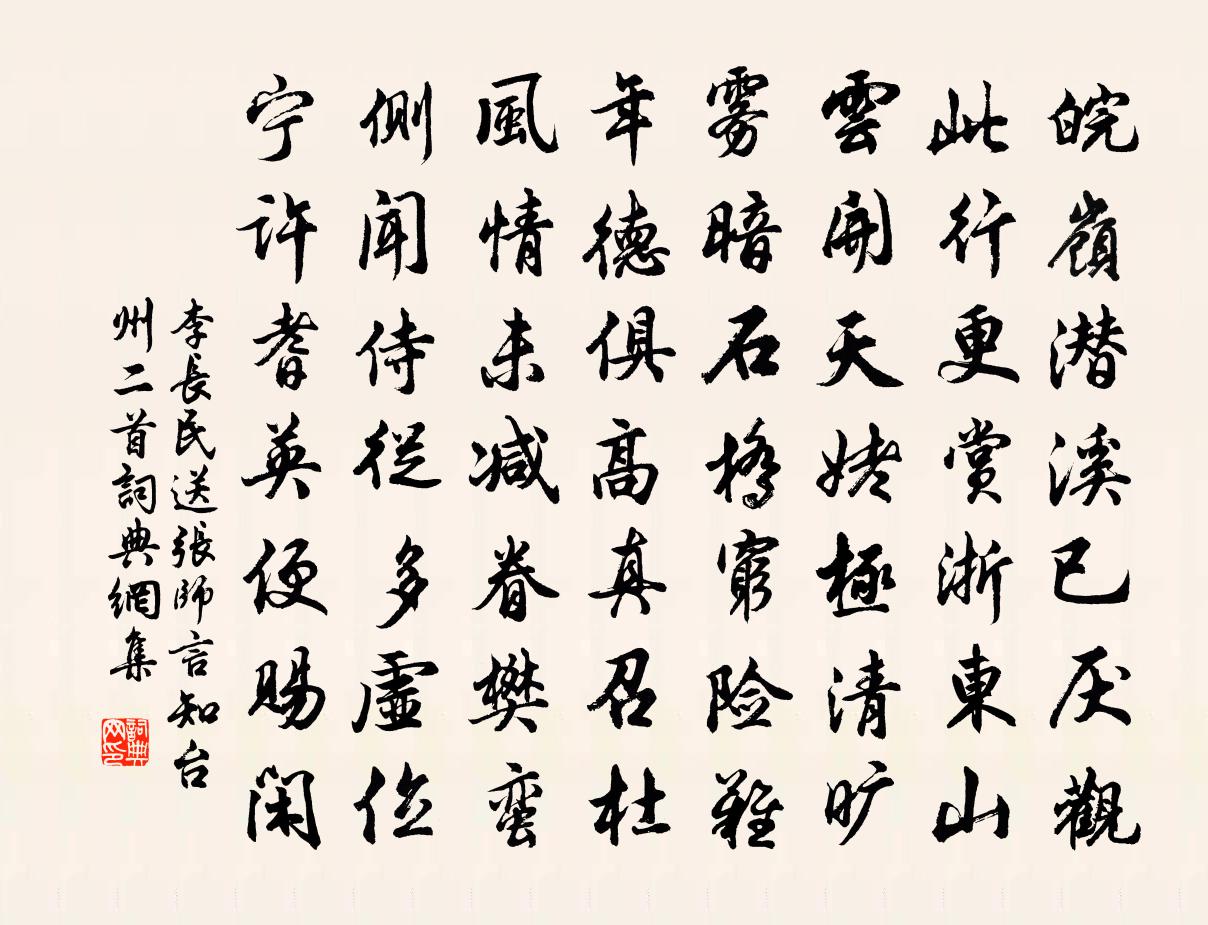 皖嶺潜溪已厌觀
此行更賞浙東山
雲開天姥極清旷
雾暗石橋窮险難
年德俱高真召杜
風情未减眷樊蛮
側聞侍從多虚位
宁許耆英便賜閑
李長民送張師言知台
州二首詞典網集
詞典網印